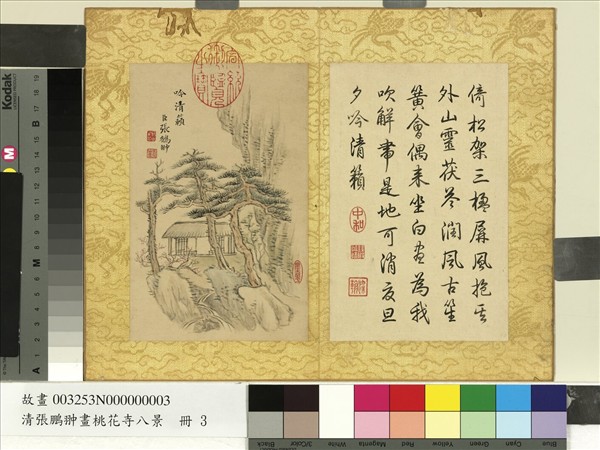 倚松架三楹屏風抱其
外山靈茯苓潤風古笙
簧會偶来坐白晝為我
吹解帶是地可消夏旦
夕吟清籟
中和
吟清籟
臣張鵬翀
Kodak
M
A
B
故畫 003253N000000003
清張鵬翀畫桃花寺八景 冊 3
Black 3/Color White Magenta Red Yellow Green Cyan Blue